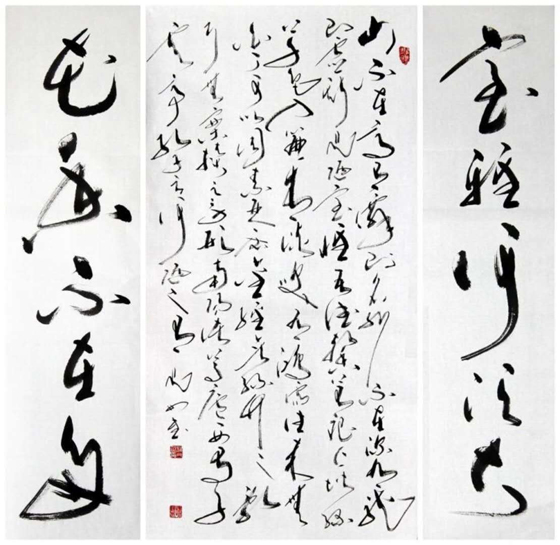 室雅何须大
山不在高有仙则名水不在深有龙
则灵斯是陋室惟吾德馨苔痕上阶绿
草色入帘青谈笑有鸿儒往来无
白丁可以调素琴阅金经无丝竹之乱
耳无案牍之劳形南阳诸葛庐西蜀子
云亭孔子云何陋之有
花香不在多